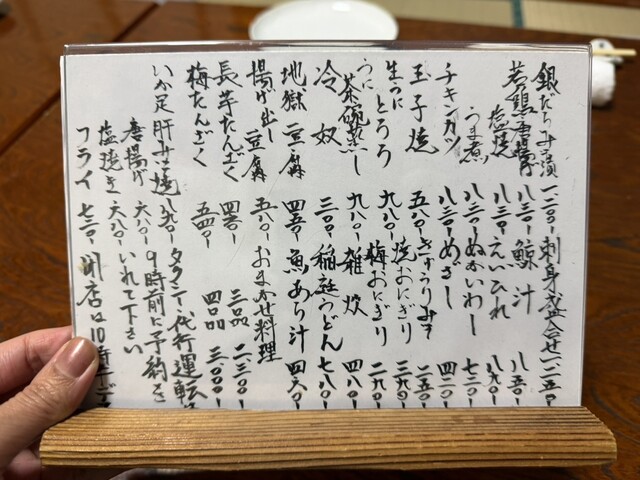 銀だらみそ漬 一二〇〇- 刺身盛合せ 一二五〇-
若鶏唐揚げ 八三〇- 鯨汁 八五〇-
塩焼 八三〇- えいひれ 八九〇-
うま煮 八三〇- ぬかいわし 七三〇-
チキンカツ 八三〇- めざし 四二〇-
玉子焼 五八〇- きゅうりみそ 二五〇-
生うにとろろ 九八〇- 焼おにぎり 三九〇-
うに茶碗蒸し 九八〇- 梅おにぎり 二九〇-
冷奴 三〇〇- 雑炊 四八〇-
地獄豆腐 四五〇- 稲庭うどん 七八〇-
揚げ出し豆腐 五八〇- 魚あら汁 四六〇-
長芋たんざく 四八〇- おまかせ料理
梅たんざく 五四〇- 三品 二三〇〇-
四品 三〇〇〇-
いか足肝みそ焼 八九〇- タクシー、代行運転は
唐揚げ 六八〇- 9時前に予約を
塩焼き 六八〇- いれて下さい
フライ 七三〇- 閉店は10時半です